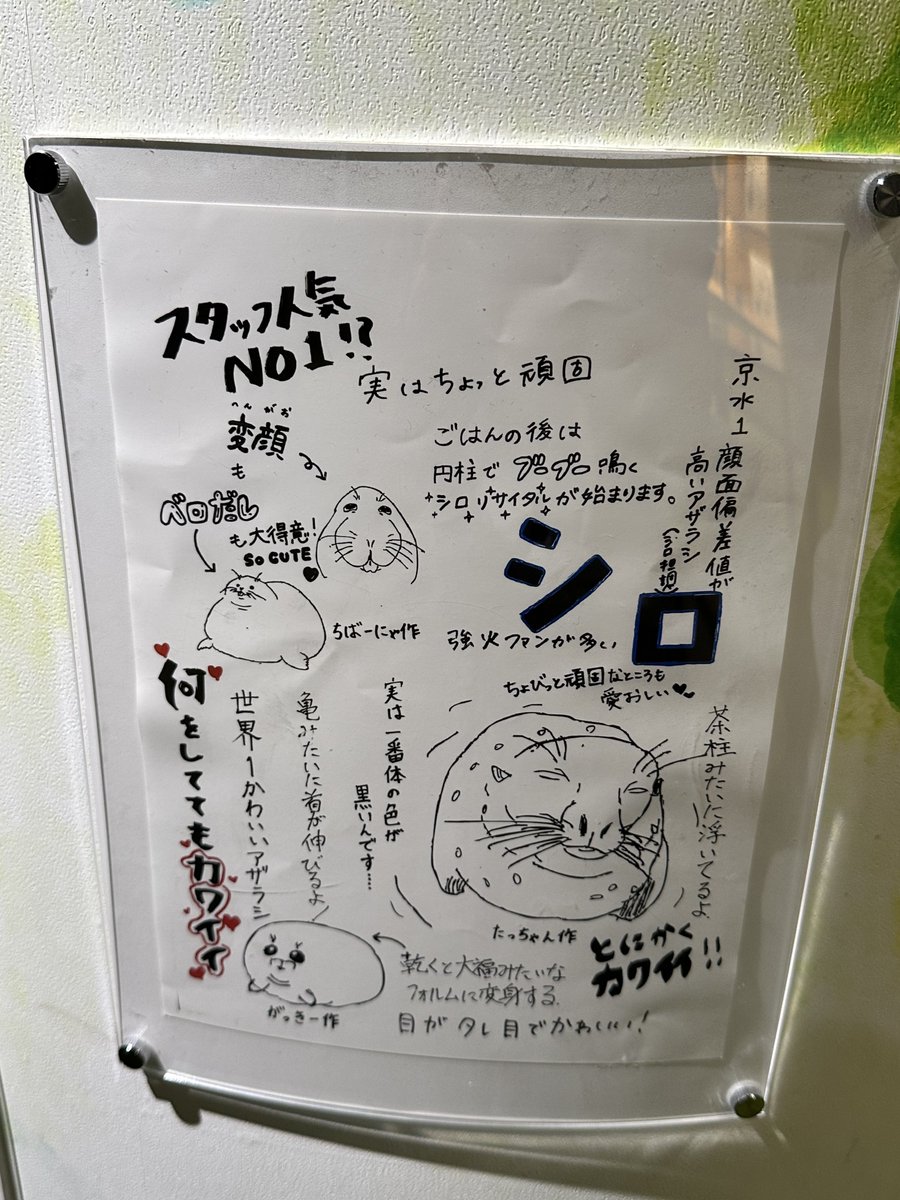 スタッフ人気
NO1!?
実はちょっと頑固
へんがお
変顔
も
ベロ出し
も大得意!
SO CUTE
ちばーにゃ作
ごはんの後は
円柱でブーブー鳴く
シロリサイタルが始まります。
京水1顔面偏差値が
高いアザラシ
シロ
強火ファンが多い
ちょびっと頑固なところも
愛おしい
何をしててもカワイイ
世界1かわいいアザラシ
亀みたいに首が伸びるよ
実は一番体の色が
黒いんです…
茶柱みたいに浮いてるよ
たっちゃん作
とにかく
カワイイ!!
がっきー作
乾くと大福みたいな
フォルムに変身する
目がタレ目でかわいい!